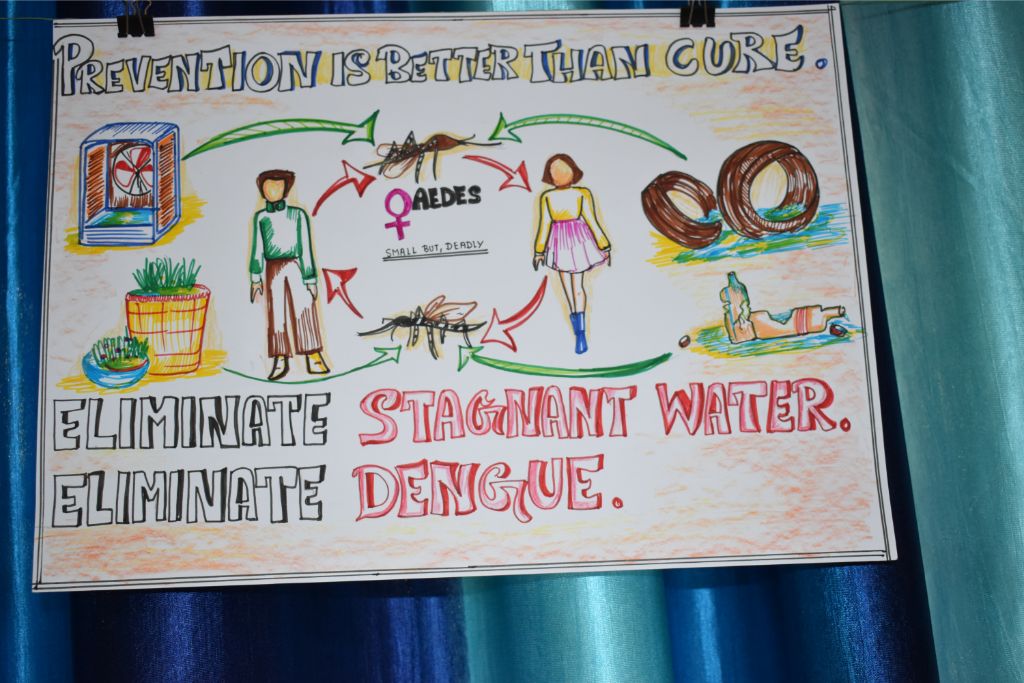 PREVENTION IS BETTER THAN CURE.
♀ AEDES
SMALL BUT, DEADLY
ELIMINATE STAGNANT WATER.
ELIMINATE DENGUE.